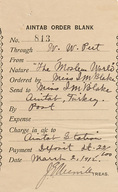 AINTAB ORDER BLANK
No. 813
Through W. W. Peet
Name
"The Moslem World"
Ordered by Miss I. M. Blake
Send to Miss I M Blake
Aintab, Turkey.
By Post
Expense
Charge in a/c to
Aintab Station
Payment Deposit Lt. 22
Date March 2, 191
Treas.